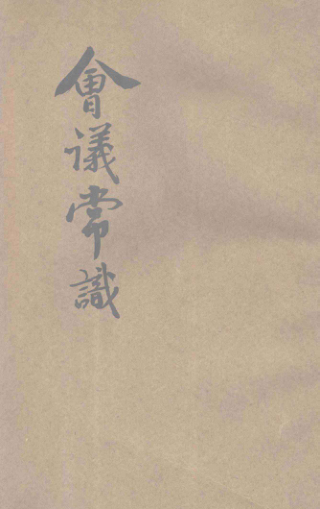 會議常識